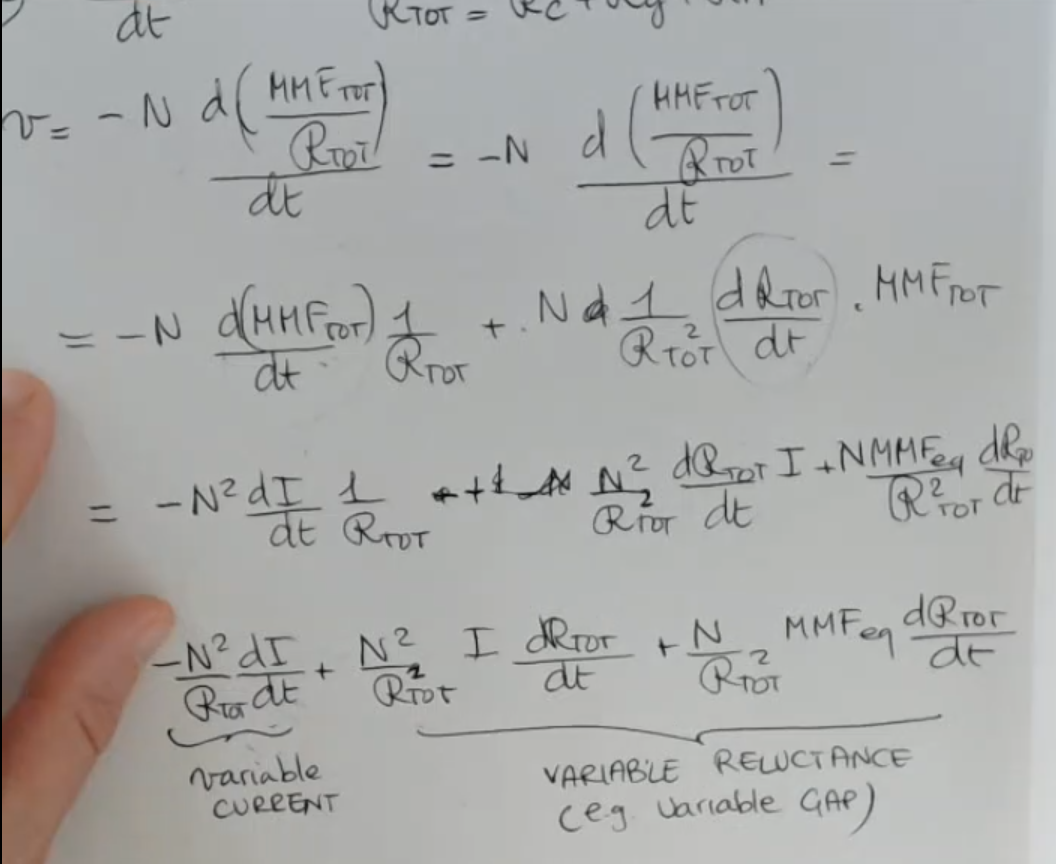 dt R_TOT =
v = -N d(MMF_TOT / R_TOT) / dt = -N d(MMF_TOT / R_TOT) / dt =
= -N d(MMF_TOT) / dt 1 / R_TOT + . N 1 / R_TOT² dR_TOT / dt . MMF_TOT
= -N² dI / dt 1 / R_TOT + N² / R_TOT² dR_TOT / dt I + N MMF_eq / R²_TOT dR / dt
-N² / R_TOT dI / dt + N² / R_TOT² I dR_TOT / dt + N / R_TOT² MMF_eq dR_TOT / dt
variable VARIABLE RELUCTANCE
CURRENT (e.g. variable GAP)